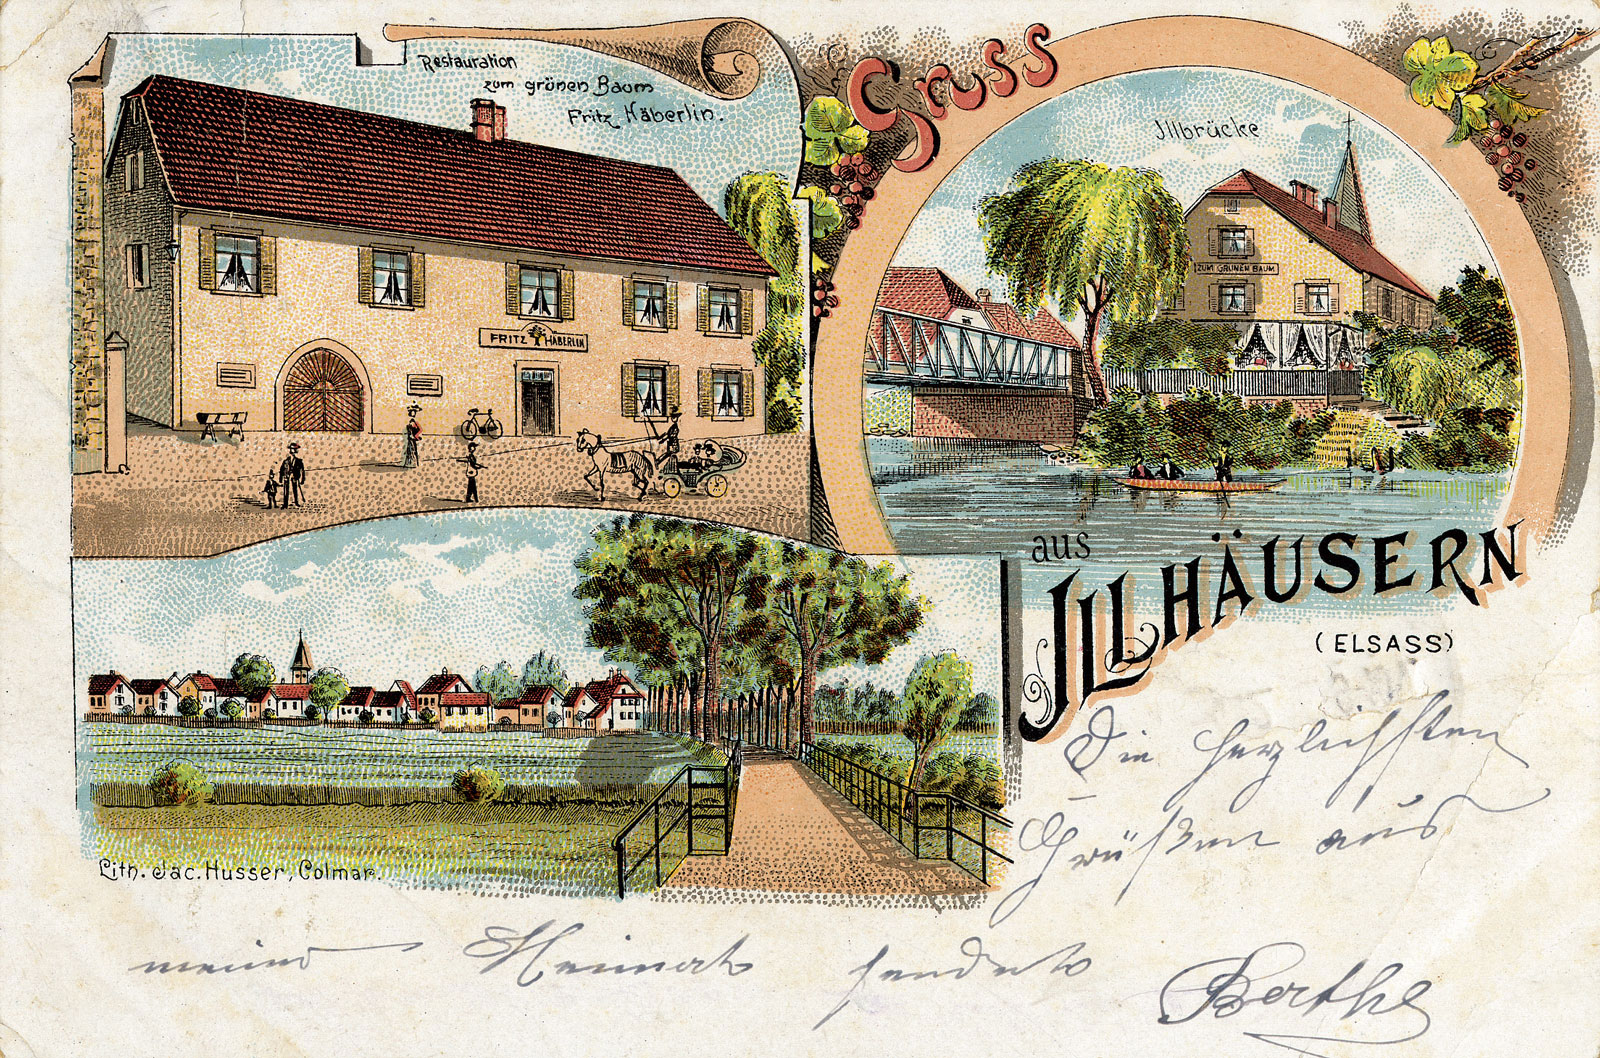 Restauration
zum grünen Baum
Fritz Häberlin.
FRITZ HÄBERLIN
Gruss
Illbrücke
ZUM GRÜNEN BAUM
aus
ILLHÄUSERN
(ELSASS)
Lith. Jac. Husser, Colmar.
Die herzlichsten
Grüßen aus
meiner Heimat sendet
Berthe